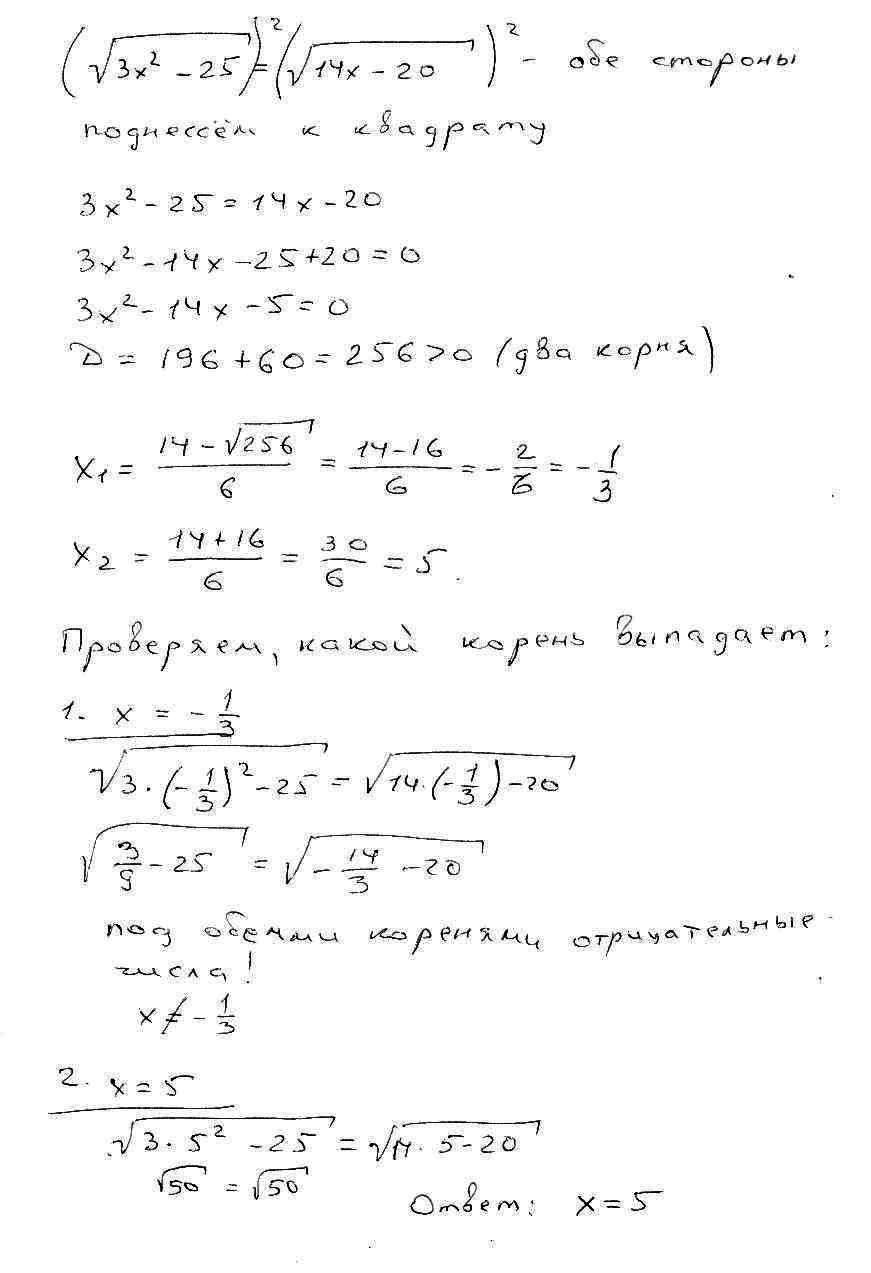 (√(3x² - 25))² = (√(14x - 20))² - обе стороны
поднессём к квадрату
3x² - 25 = 14x - 20
3x² - 14x - 25 + 20 = 0
3x² - 14x - 5 = 0
D = 196 + 60 = 256 > 0 (два корня)
x₁ = (14 - √256)/6 = (14 - 16)/6 = - 2/6 = - 1/3
x₂ = (14 + 16)/6 = 30/6 = 5.
Проверяем, какой корень выпадает:
1. x = - 1/3
√(3 · (- 1/3)² - 25) = √(14 · (- 1/3) - 20)
√(3/9 - 25) = √(- 14/3 - 20)
под обеими коренями отрицательные
числа!
x ≠ - 1/3
2. x = 5
√(3 · 5² - 25) = √(14 · 5 - 20)
√50 = √50
Ответ: x = 5